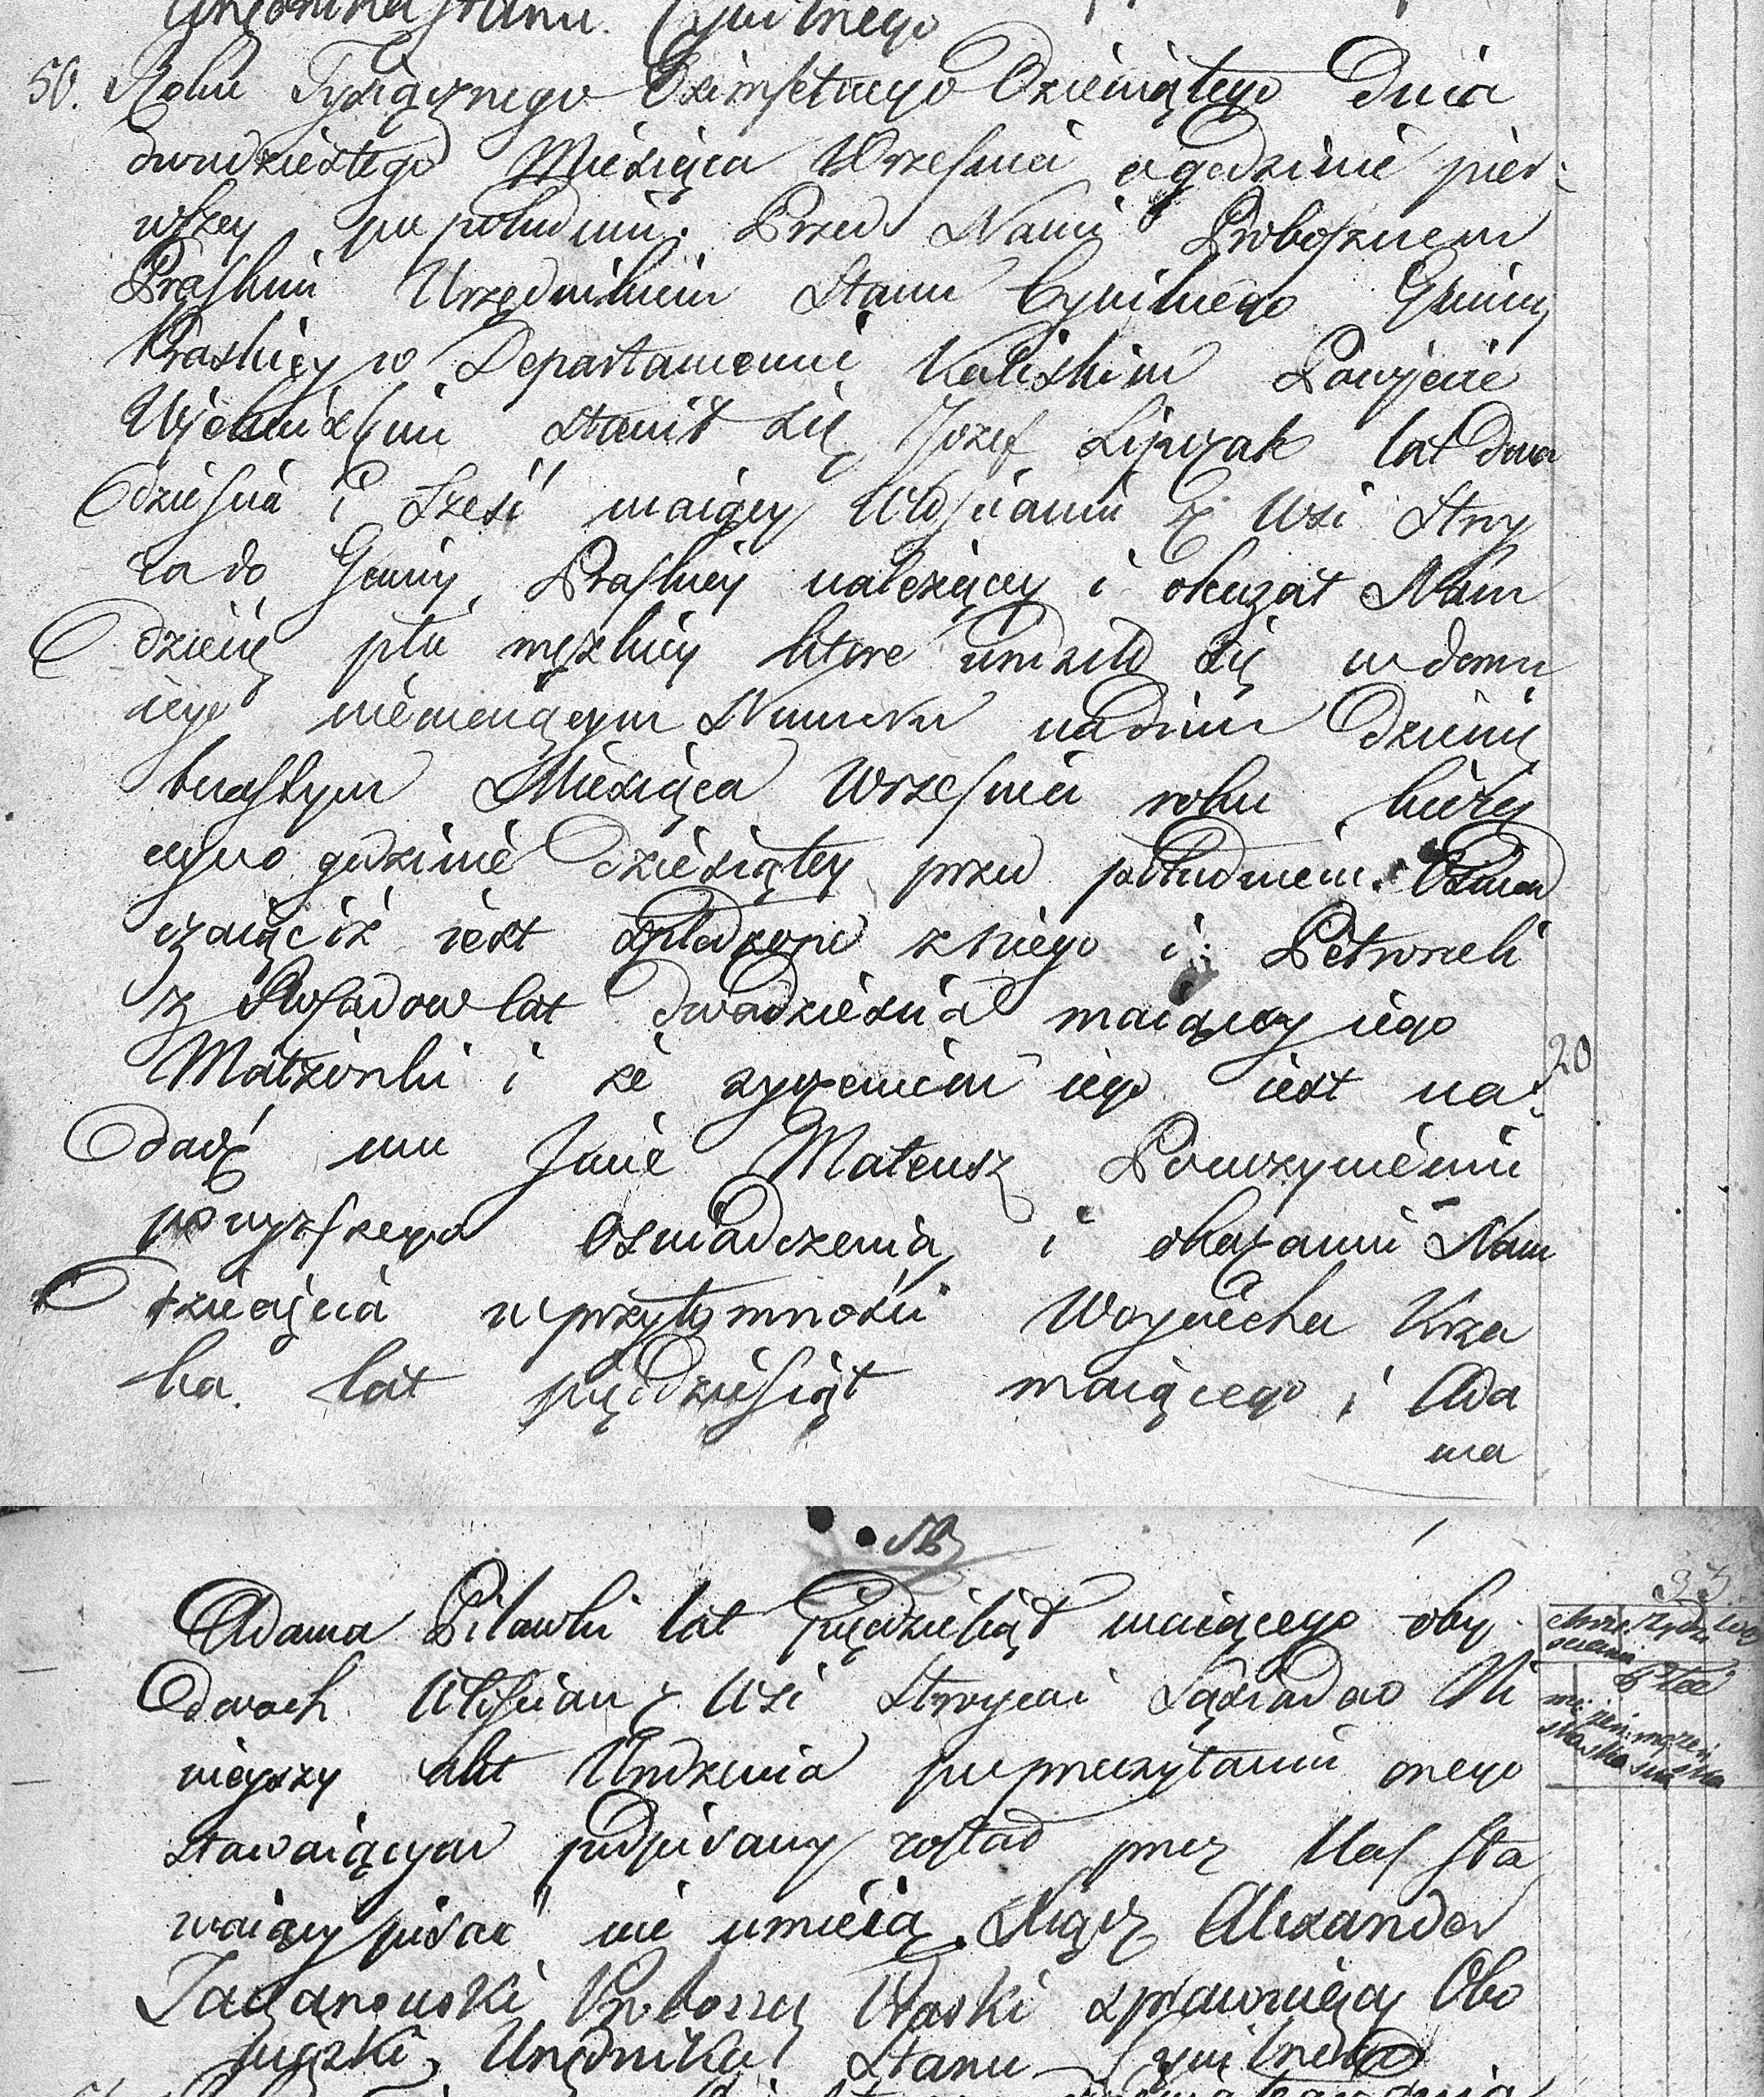 Urzędnika Stanu Cywilnego
50. Roku Tysiącznego Osimsetnego Dziewiątego Dnia
dwudziestego Miesiąca Września o godzinie pier:
wszey po południu. Przed Nami Proboszczem
Praskim Urzędnikiem Stanu Cywilnego Gminy
Praskiey w Departamencie Kaliskim Powiecie
stawił się Jozef Lipczak lat dwa
dzieścia i Sześć maiący Włościanin z Wsi Stroy
ca do Gminy Praskiey należący i okazał Nam
dziecię płci męzkiey które urodziło się w domu
iego niemaiącym Numeru na dniu dziewię
tnastym Miesiąca Września roku bieżą
cego godzinie dziesiątey przed południem. Oswiad
czaiąc iż iest spłodzone z niego i Petroneli
z lat dwadzieścia maiącey iego
Małżonki i że życzeniem iego iest na:
dać mu Jmie Mateusz Po uczynieniu
powyzszego Oswiadczenia i okazaniu Nam
dziecięcia w przytomności Woyciecha Krza
ka. lat pięćdziesiąt maiącego i Ada
ma
20
Adama Pilawki lat pięćdziesiąt maiącego oby
dwoch Włościan z Wsi Stroyca Sąsiadow Ni
nieyszy akt Urodzenia po przeczytaniu onego
stawaiącym podpisany został przez Nas Sta
waiący pisać nie umieią. Xiądz Alexander
Taczanowski Proboszcz Praski sprawuiący Obo
wiązki Urzędnika Stanu Cywilnego